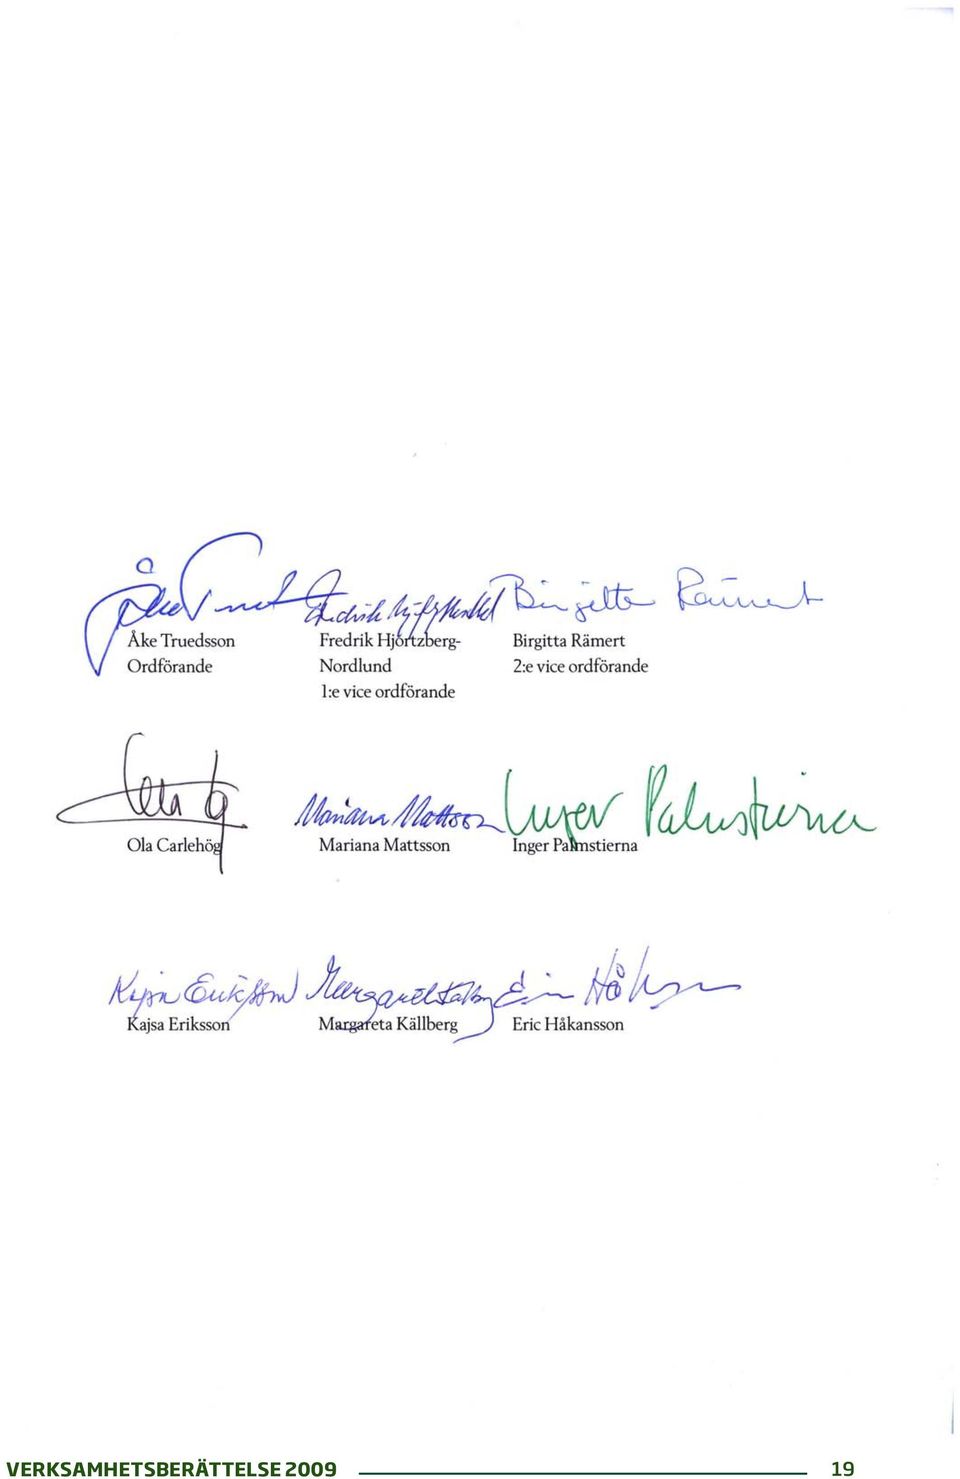 Åke Truedsson
Ordförande
Fredrik Hjortzberg-
Nordlund
1:e vice ordförande
Birgitta Rämert
2:e vice ordförande
Ola Carlehög
Mariana Mattsson
Mariana Mattsson
Inger Palmstierna
Inger Palmstierna
Kajsa Eriksson
Kajsa Eriksson
Margareta Källberg
Eric Håkansson
VERKSAMHETSBERÄTTELSE 2009 19